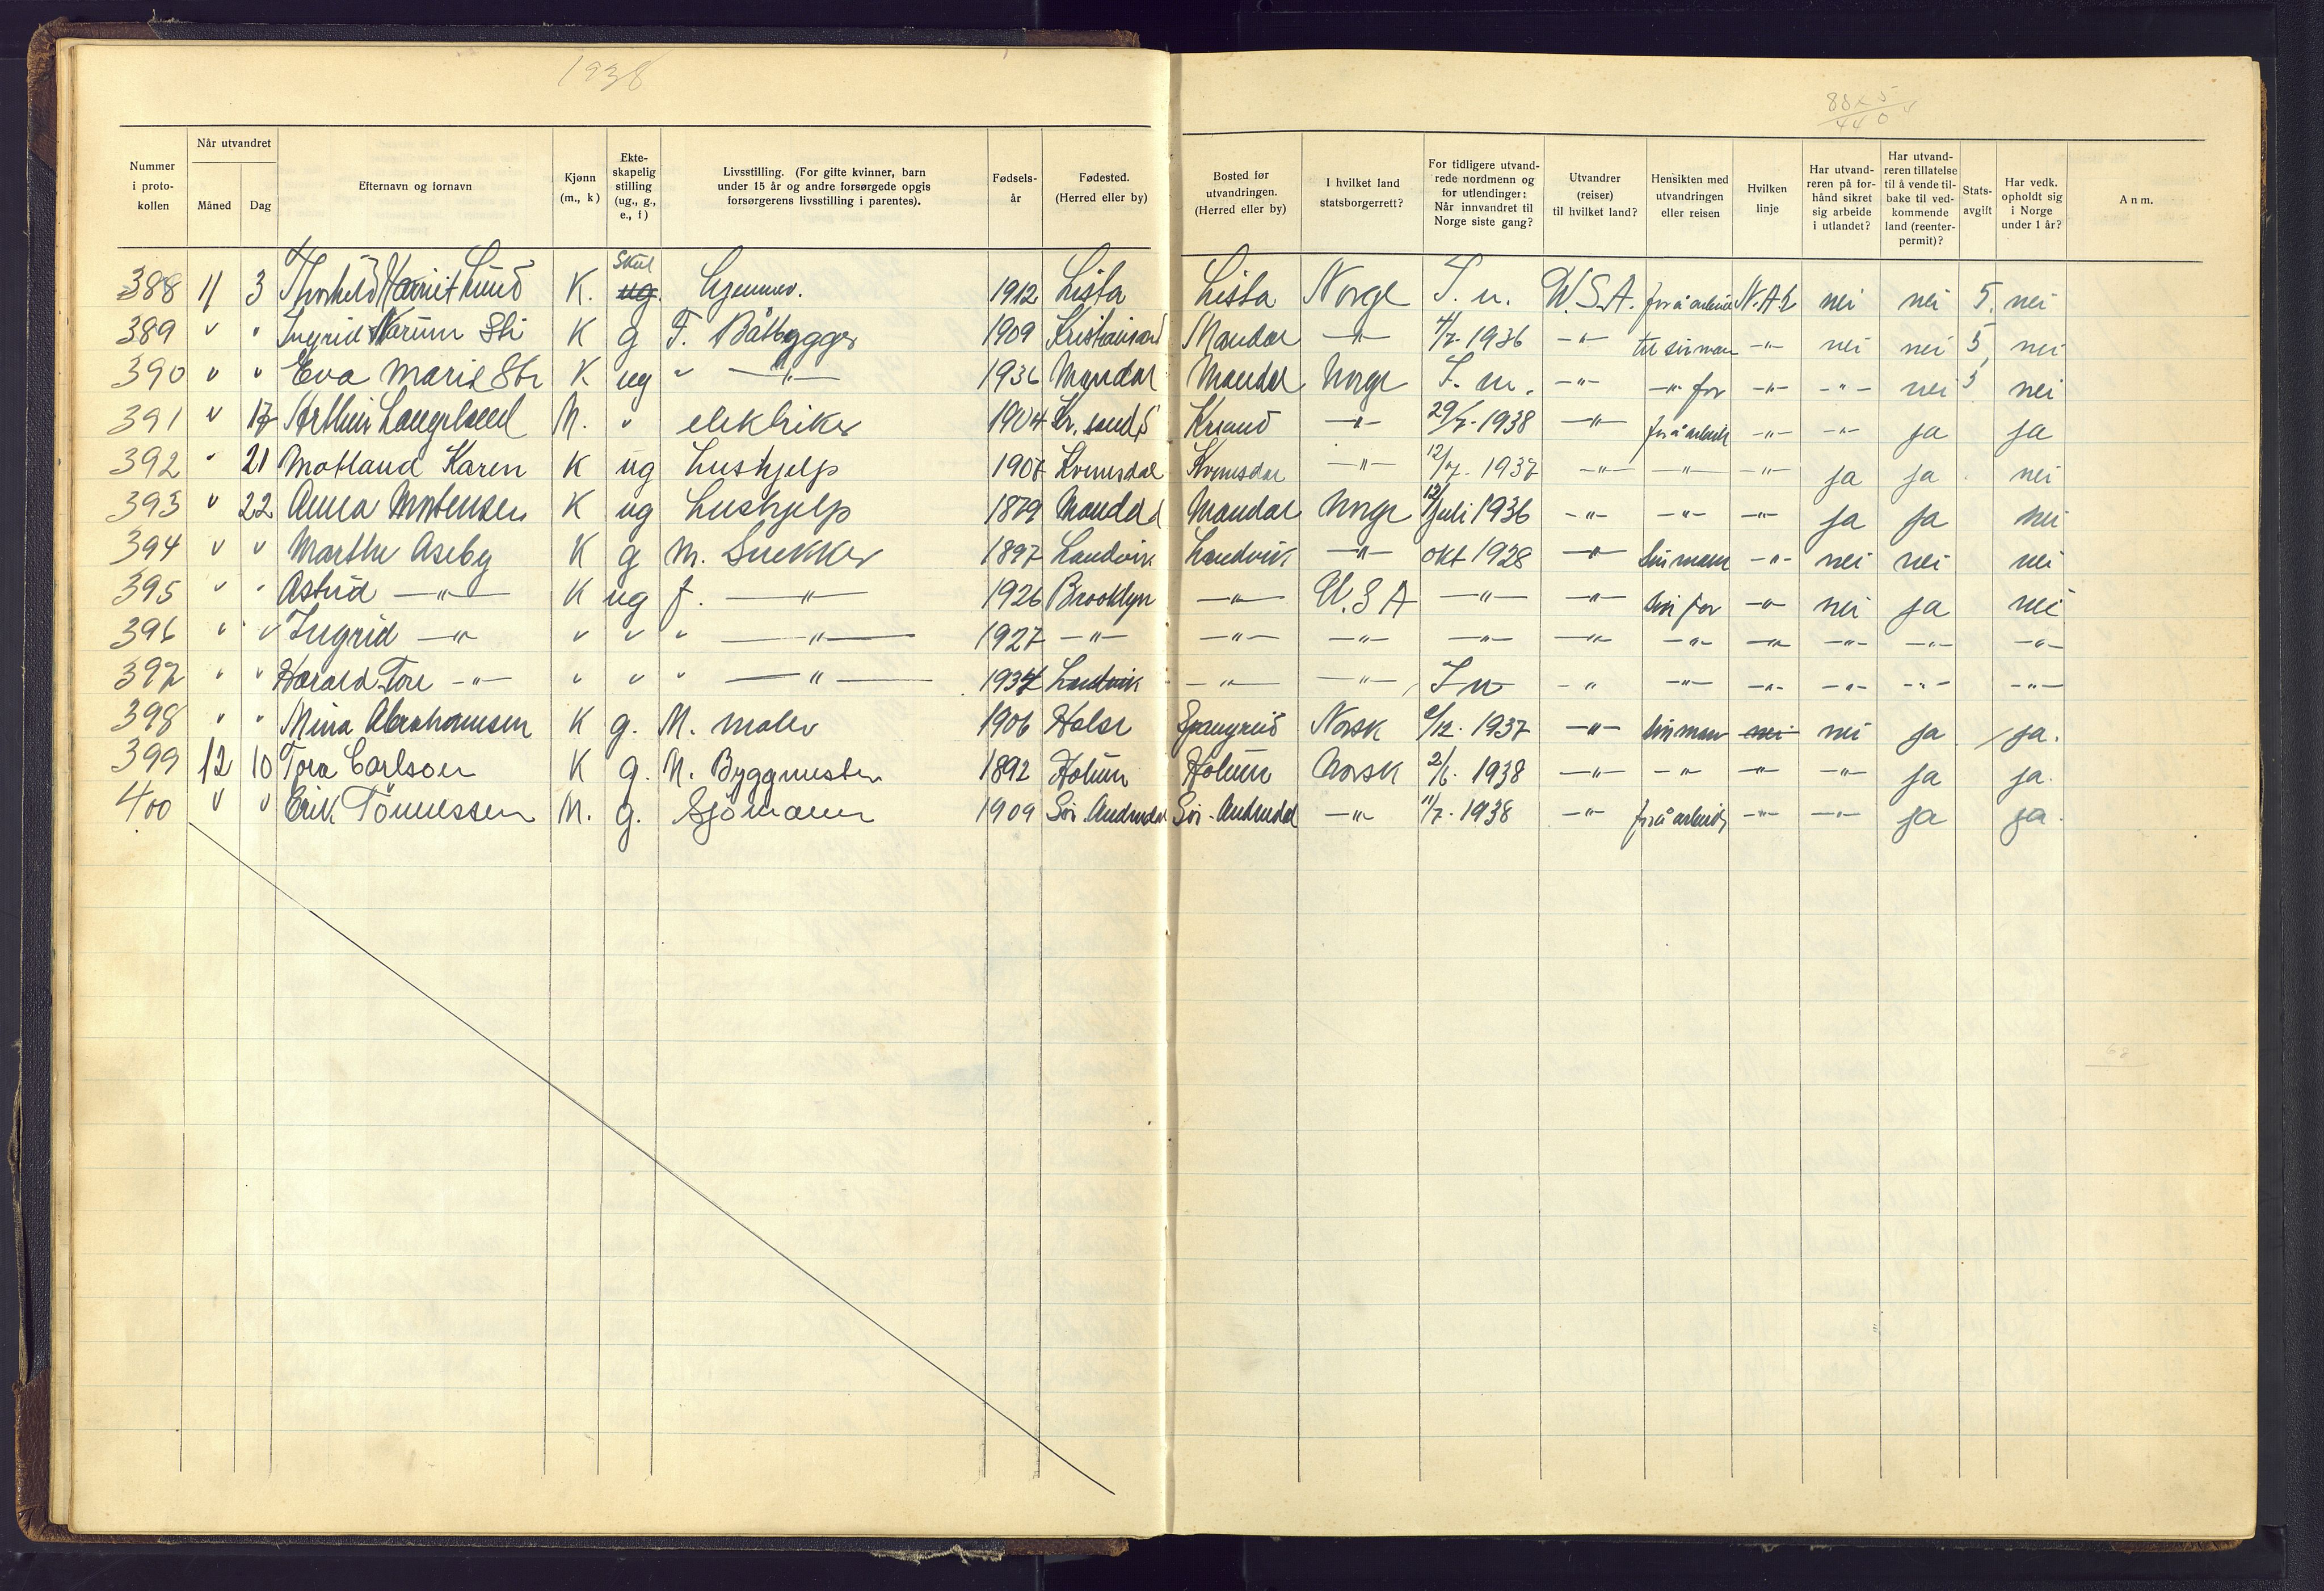 1938
88 x 5
44 0
Nummer i proto-kollen | Når utvandret Måned Dag | Efternavn og fornavn | Kjønn (m., k) | Ekte-skapelig stilling (ug., g., e., f) | Livsstilling. (For gifte kvinner, barn under 15 år og andre forsørgede opgis forsørgerens livsstilling i parentes). | Fødsels-år | Fødested. (Herred eller by) | Bosted før utvandringen. (Herred eller by) | I hvilket land statsborgerrett? | For tidligere utvand-rede nordmenn og for utlendinger: Når innvandret til Norge siste gang? | Utvandrer (reiser) til hvilket land? | Hensikten med utvandringen eller reisen | Hvilken linje | Har utvand-reren på for-hånd sikret sig arbeide i utlandet? | Har utvand-reren tillatelse til å vende til-bake til ved-kommende land (reenter-permit)? | Stats-avgift | Har vedk. opholdt sig i Norge under 1 år? | Anm.
388 11 3 Thorhild Harriet Lund K. skil ug. hjemmev. 1912 Lista Lista Norge I. u. U.S.A. for å arbeide N.A.L nei nei 5. nei
389 " " Ingrid Narum Sti K g F. Båtbygger 1909 Kristiansand Mandal -"- 4/7-1936 -"- til sin man -"- nei nei 5, nei
390 " " Eva Marie Sti K ug " -"- 1936 Mandal Mandal Norge I. u. -"- -"- far -"- -"- nei 5 nei
391 " 17 Arthur Langeland M. " elektriker 1904 Kr.sand S Krsand -"- 29/7-1938 -"- for å arbeide -"- -"- ja ja
392 " 21 Motland Karen K ug hushjelp 1907 Kvinesdal Kvinesdal -"- 12/7-1937 -"- -"- -"- ja ja nei
393 " 22 Anna Mortensen K ug hushjelp 1879 Mandal Mandal Norge 12/Juli 1936 -"- -"- -"- ja ja nei
394 " " Marthe Aseby K g M. Snekker 1897 Landvik Landvik -"- okt 1928 -"- sin mann -"- nei nei nei
395 " " Astrid -"- K ug f. -"- 1926 Brooklyn -"- U.S A -"- -"- sin far -"- nei ja nei
396 " " Ingrid -"- " " " -"- 1927 -"- -"- -"- -"- -"- -"- -"- -"- -"- -"-
397 " " Harald Tore -"- " " " -"- 1934 Landvik -"- -"- I u -"- -"- -"- -"- -"- -"-
398 " " Mina Abrahamsen K g. M. maler 1906 Halse Spangreid Norsk 6/12-1937 -"- sin man nei nei ja ja.
399 12 10 Tora Carlson K g. M. Byggmester 1892 Holum Holum Norsk 2/6-1938 -"- -"- -"- -"- ja ja.
400 " " Erik Tönnessen M. g. Sjömann 1909 Sör-Audnedal Sör-Audnedal -"- 11/7-1938 -"- for å arbeide -"- -"- ja ja.